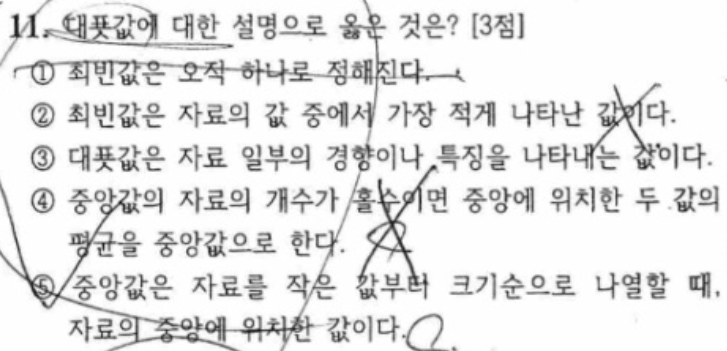 11. 대푯값에 대한 설명으로 옳은 것은? [3점]
① 최빈값은 오직 하나로 정해진다.
② 최빈값은 자료의 값 중에서 가장 적게 나타난 값이다.
③ 대푯값은 자료 일부의 경향이나 특징을 나타내는 값이다.
④ 중앙값의 자료의 개수가 홀수이면 중앙에 위치한 두 값의
평균을 중앙값으로 한다.
⑤ 중앙값은 자료를 작은 값부터 크기순으로 나열할 때,
자료의 중앙에 위치한 값이다.